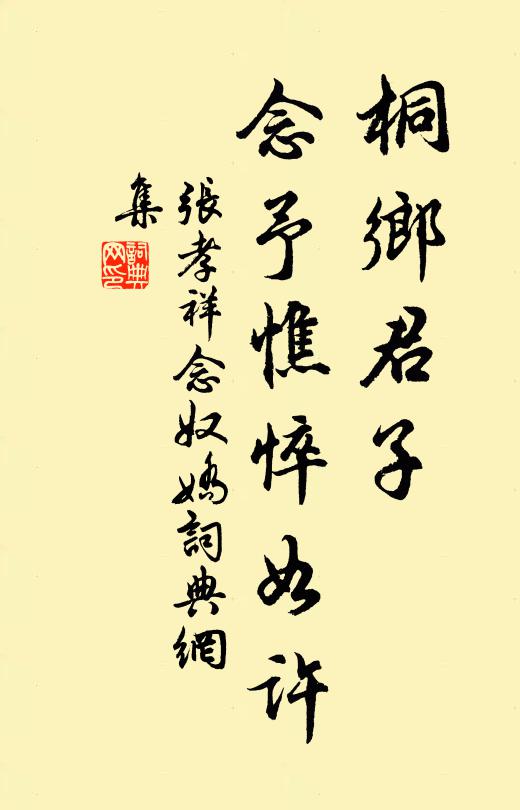 桐鄉君子
念予憔悴如許
張孝祥念奴嬌詞典網
集
詞典
网印